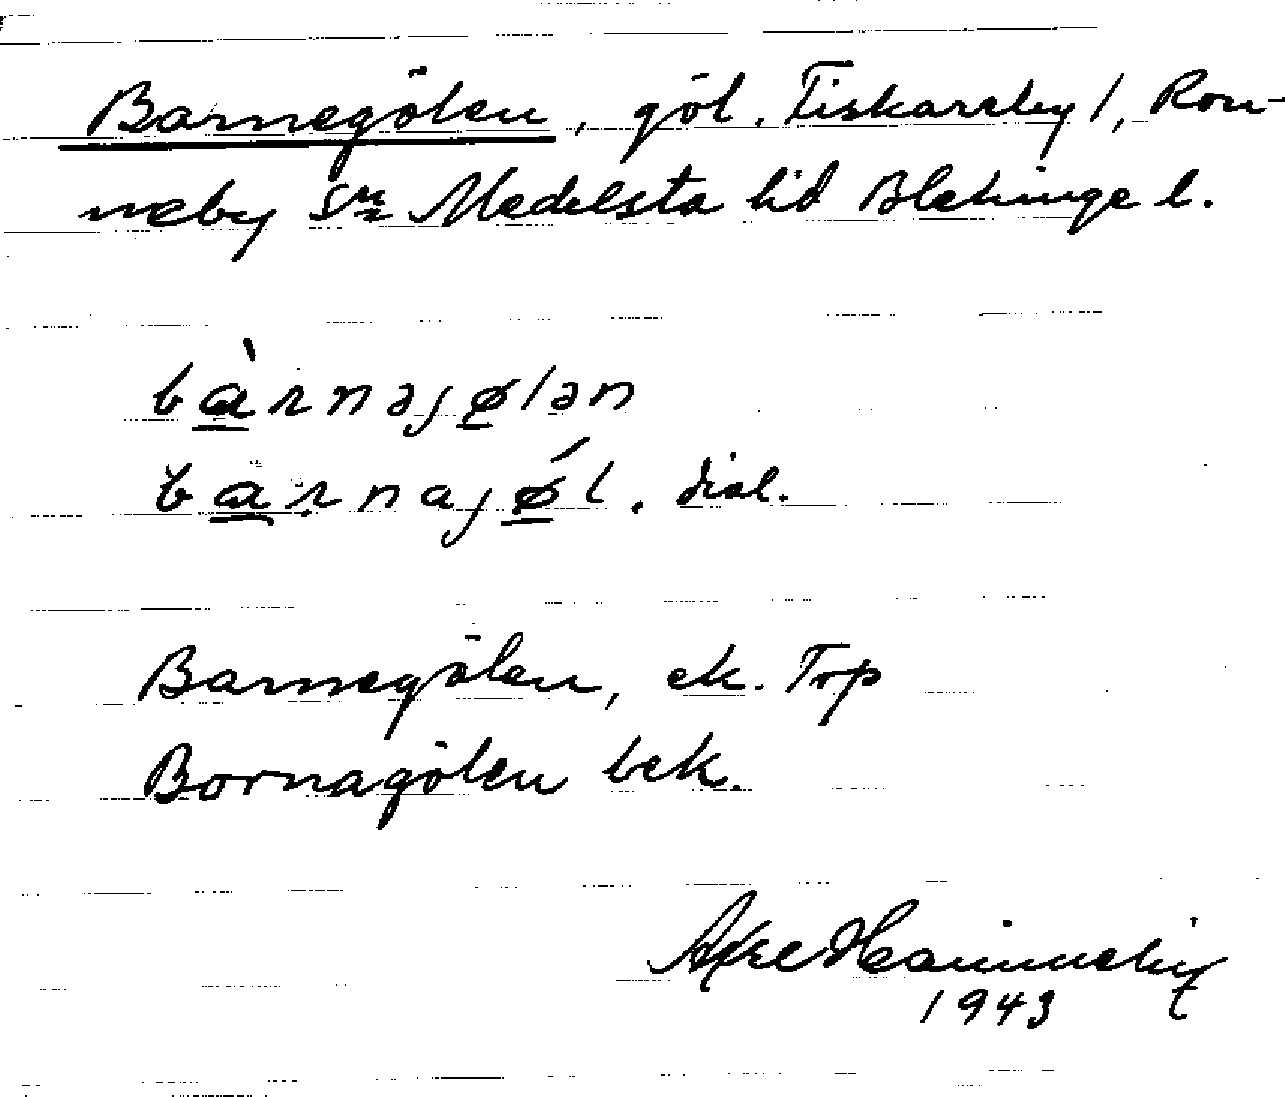 Barnegölen, göl. Fiskareby 1, Ron-
neby sn Medelsta hd Blekinge l.
bàrnəjølən
barnajǿl. dial.
Barnegölen, ek. Trp
Bornagölen bek.
1943